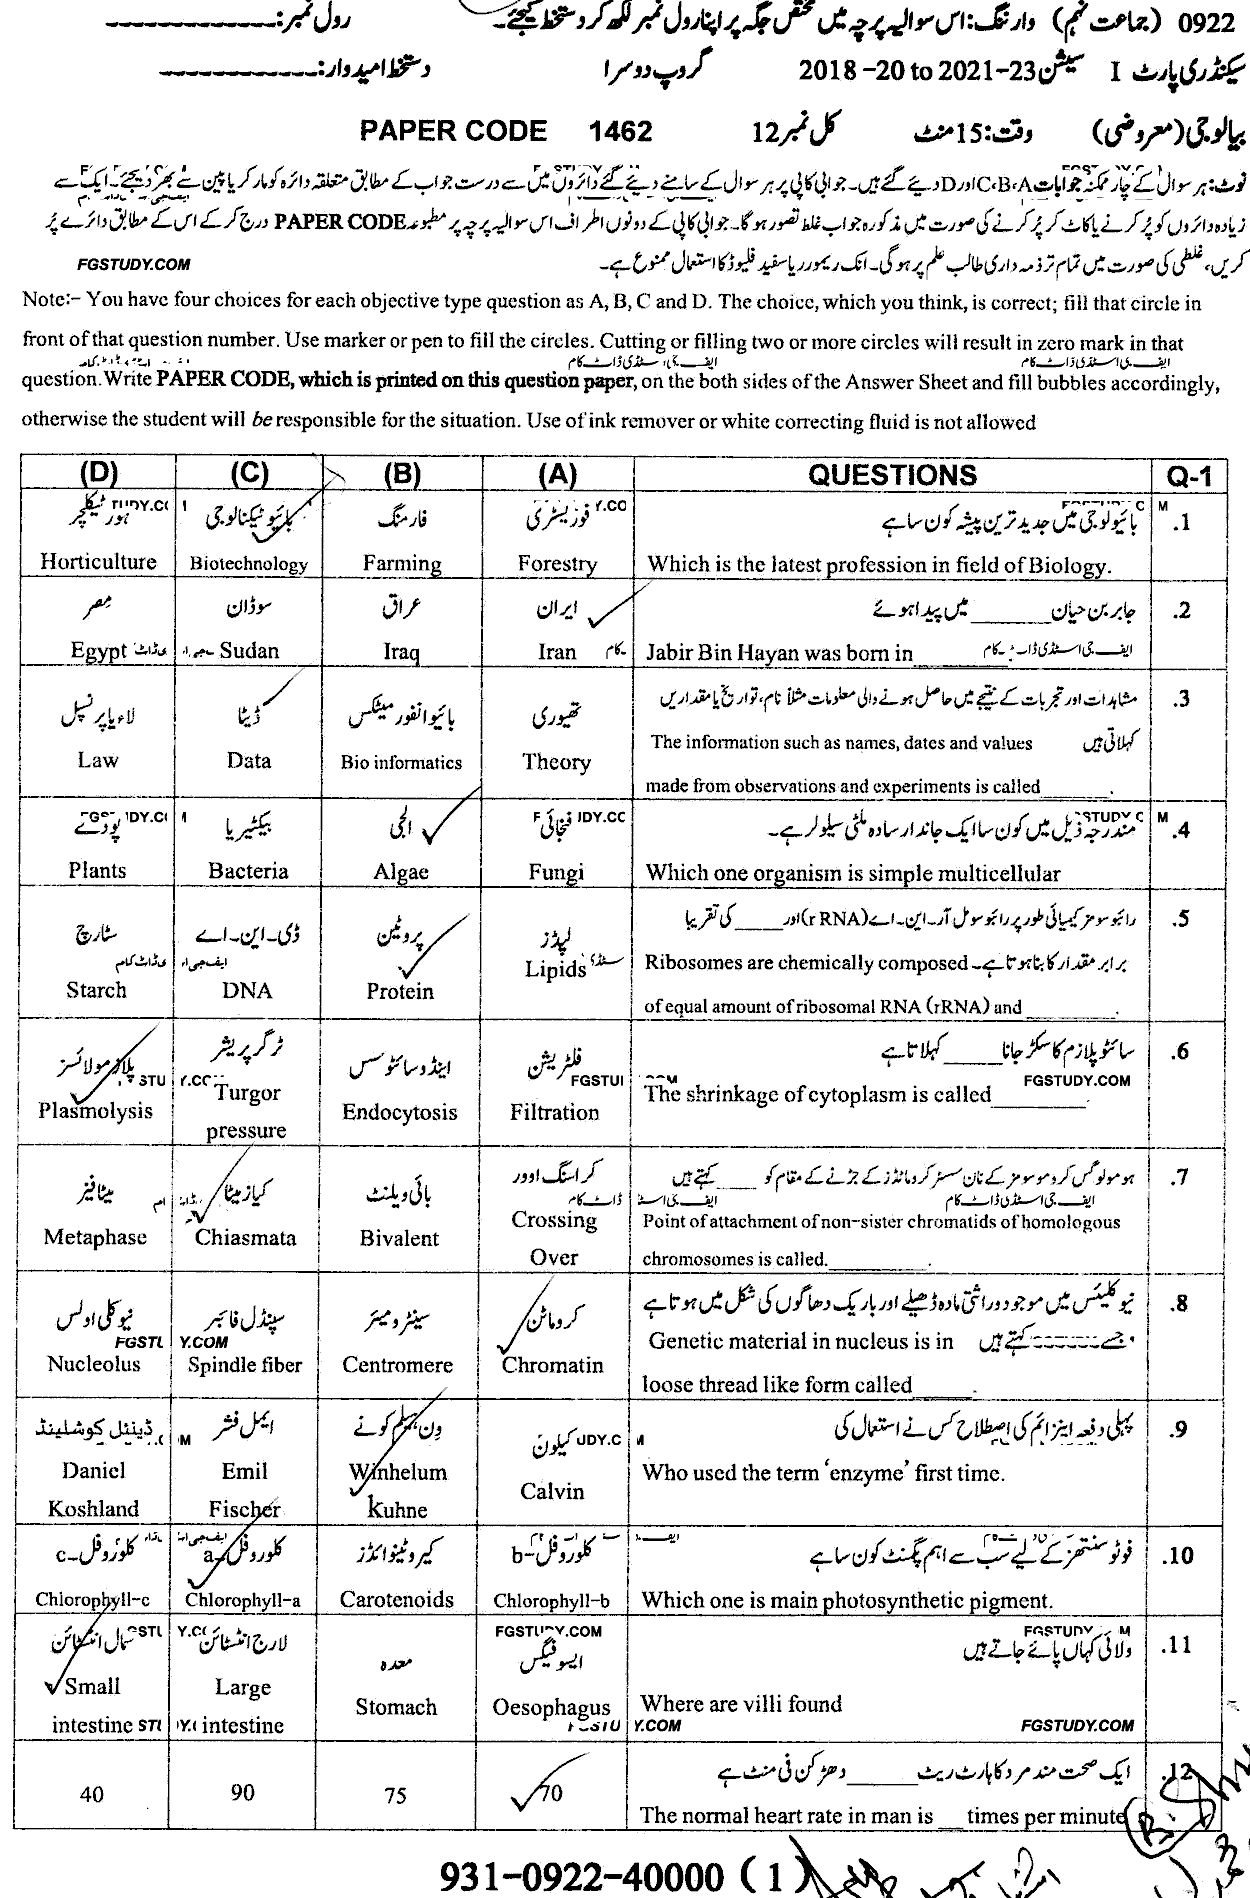 0922 (جماعت نہم) وارننگ: اس سوالیہ پرچہ میں مختص جگہ پر اپنا رول نمبر لکھ کر دستخط کیجئے۔ رول نمبر:
سیکنڈری پارٹ I سیشن 2018-20 to 2021-23 گروپ دوسرا دستخط امیدوار:
بیالوجی (معروضی) وقت: 15 منٹ کل نمبر 12 PAPER CODE 1462
نوٹ: ہر سوال کے چار ممکنہ جوابات A، B، C اور D دیئے گئے ہیں۔ جوابی کاپی پر ہر سوال کے سامنے دیئے گئے دائروں میں سے درست جواب کے مطابق متعلقہ دائرہ کو مارکر یا پین سے بھر دیجئے۔ ایک سے
زیادہ دائروں کو پُر کرنے یا کاٹ کر پُر کرنے کی صورت میں مذکورہ جواب غلط تصور ہوگا۔ جوابی کاپی کے دونوں اطراف اس سوالیہ پرچہ پر مطبوعہ PAPER CODE درج کر کے اس کے مطابق دائرے پُر
کریں، غلطی کی صورت میں تمام تر ذمہ داری طالب علم پر ہوگی۔ انک ریمور یا سفید فلیوڈ کا استعمال ممنوع ہے۔ FGSTUDY.COM
Note:- You have four choices for each objective type question as A, B, C and D. The choice, which you think, is correct; fill that circle in
front of that question number. Use marker or pen to fill the circles. Cutting or filling two or more circles will result in zero mark in that
question. Write PAPER CODE, which is printed on this question paper, on the both sides of the Answer Sheet and fill bubbles accordingly,
otherwise the student will be responsible for the situation. Use of ink remover or white correcting fluid is not allowed
(D) (C) (B) (A) QUESTIONS Q-1
ہورٹیکلچر بائیوٹیکنالوجی فارمنگ فوریسٹری بائیولوجی میں جدید ترین پیشہ کون سا ہے .1
Horticulture Biotechnology Farming Forestry Which is the latest profession in field of Biology.
مصر سوڈان عراق ایران جابر بن حیان ______ میں پیدا ہوئے .2
Egypt Sudan Iraq Iran Jabir Bin Hayan was born in ______
لاء یا پرنسپل ڈیٹا بائیو انفورمیٹکس تھیوری مشاہدات اور تجربات کے نتیجے میں حاصل ہونے والی معلومات مثلاً نام، تواریخ یا مقداریں .3
کہلاتی ہیں The information such as names, dates and values
Law Data Bio informatics Theory made from observations and experiments is called______.
پودے بیکٹیریا الجی فنجائی مندرجہ ذیل میں کون سا ایک جاندار سادہ ملٹی سیلولر ہے۔ .4
Plants Bacteria Algae Fungi Which one organism is simple multicellular
سٹارچ ڈی۔این۔اے پروٹین لپڈز رائبوسومز کیمیائی طور پر رائبوسومل آر۔این۔اے (rRNA) اور ____ کی تقریبا .5
برابر مقدار کا بنا ہوتا ہے۔ Ribosomes are chemically composed
Starch DNA Protein Lipids of equal amount of ribosomal RNA (rRNA) and ________.
پلازمولائسز ٹرگر پریشر اینڈوسائٹوسس فلٹریشن سائٹوپلازم کا سکڑ جانا ____ کہلاتا ہے .6
FGSTUDY.COM
Plasmolysis Turgor pressure Endocytosis Filtration The shrinkage of cytoplasm is called________.
میٹافیز کیازمیٹا بائی ویلنٹ کراسنگ اوور ہومولوگس کروموسومز کے نان سسٹر کروماٹڈز کے جڑنے کے مقام کو ____ کہتے ہیں .7
ایف۔جی اسٹڈی ڈاٹ کام
Metaphase Chiasmata Bivalent Crossing Over Point of attachment of non-sister chromatids of homologous
chromosomes is called.________.
نیوکلی اولس سپنڈل فائبر سینٹرومیئر کروماٹن نیوکلیئس میں موجود وراثتی مادہ ڈھیلے اور باریک دھاگوں کی شکل میں ہوتا ہے .8
جسے -------- کہتے ہیں Genetic material in nucleus is in
Nucleolus Spindle fiber Centromere Chromatin loose thread like form called_____.
ڈینیئل کوشلینڈ ایمل فشر ون ہیلم کوہنے کیلون پہلی دفعہ اینزائم کی اصطلاح کس نے استعمال کی .9
Daniel Koshland Emil Fischer Winhelum Kuhne Calvin Who used the term 'enzyme' first time.
کلوروفل-c کلوروفل-a کیروٹینوائڈز کلوروفل-b فوٹو سنتھیز کے لیے سب سے اہم پگمنٹ کون سا ہے .10
Chlorophyll-c Chlorophyll-a Carotenoids Chlorophyll-b Which one is main photosynthetic pigment.
سمال انٹسٹائن لارج انٹسٹائن معدہ ایسوفیگس ولائی کہاں پائے جاتے ہیں .11
Small intestine Large intestine Stomach Oesophagus Where are villi found
FGSTUDY.COM
40 90 75 70 ایک صحت مند مرد کا ہارٹ ریٹ ______ دھڑکن فی منٹ ہے .12
The normal heart rate in man is __ times per minute
931-0922-40000 (1)